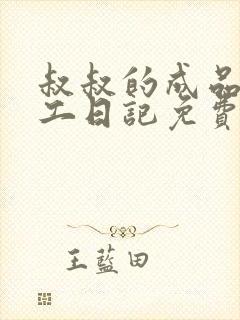 叔叔的成品
工日記免費
王藍田